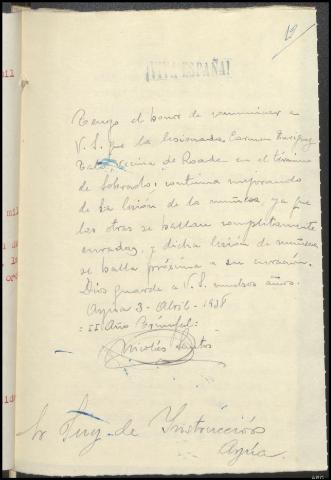 19
¡VIVA ESPAÑA!
Tengo el honor de comunicar a
V. S. que la lesionada Carmen
vecina de Roade en el término
de Sobrado, continua mejorando
de la lesión de la muñeca, ya que
las otras se hallan completamente
curadas, y dicha lesion de muñeca
se halla próxima a su curación.
Dios guarde a V. S. muchos años.
Arzúa 3- Abril- 1938
= II Año Triunfal =
Nicolás Santos
Sr Juez de Instrucción
Arzúa.